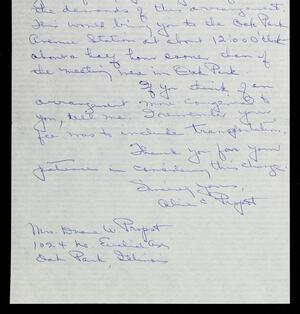 the demands of this arrangement.
This would bring you to the Oak Park
Avenue Station at about 12:00 that
about a half hour sooner than if
the meeting were in Oak Park.
If you think of an
arrangement more congenial to
you, tell me. I remember your
fee was to include transportation.
Thank you for your
patience in considering this change.
Sincerely yours,
Alice C. Propst
Mrs. Duane W. Propst
1024 No. Euclid Ave
Oak Park, Illinois